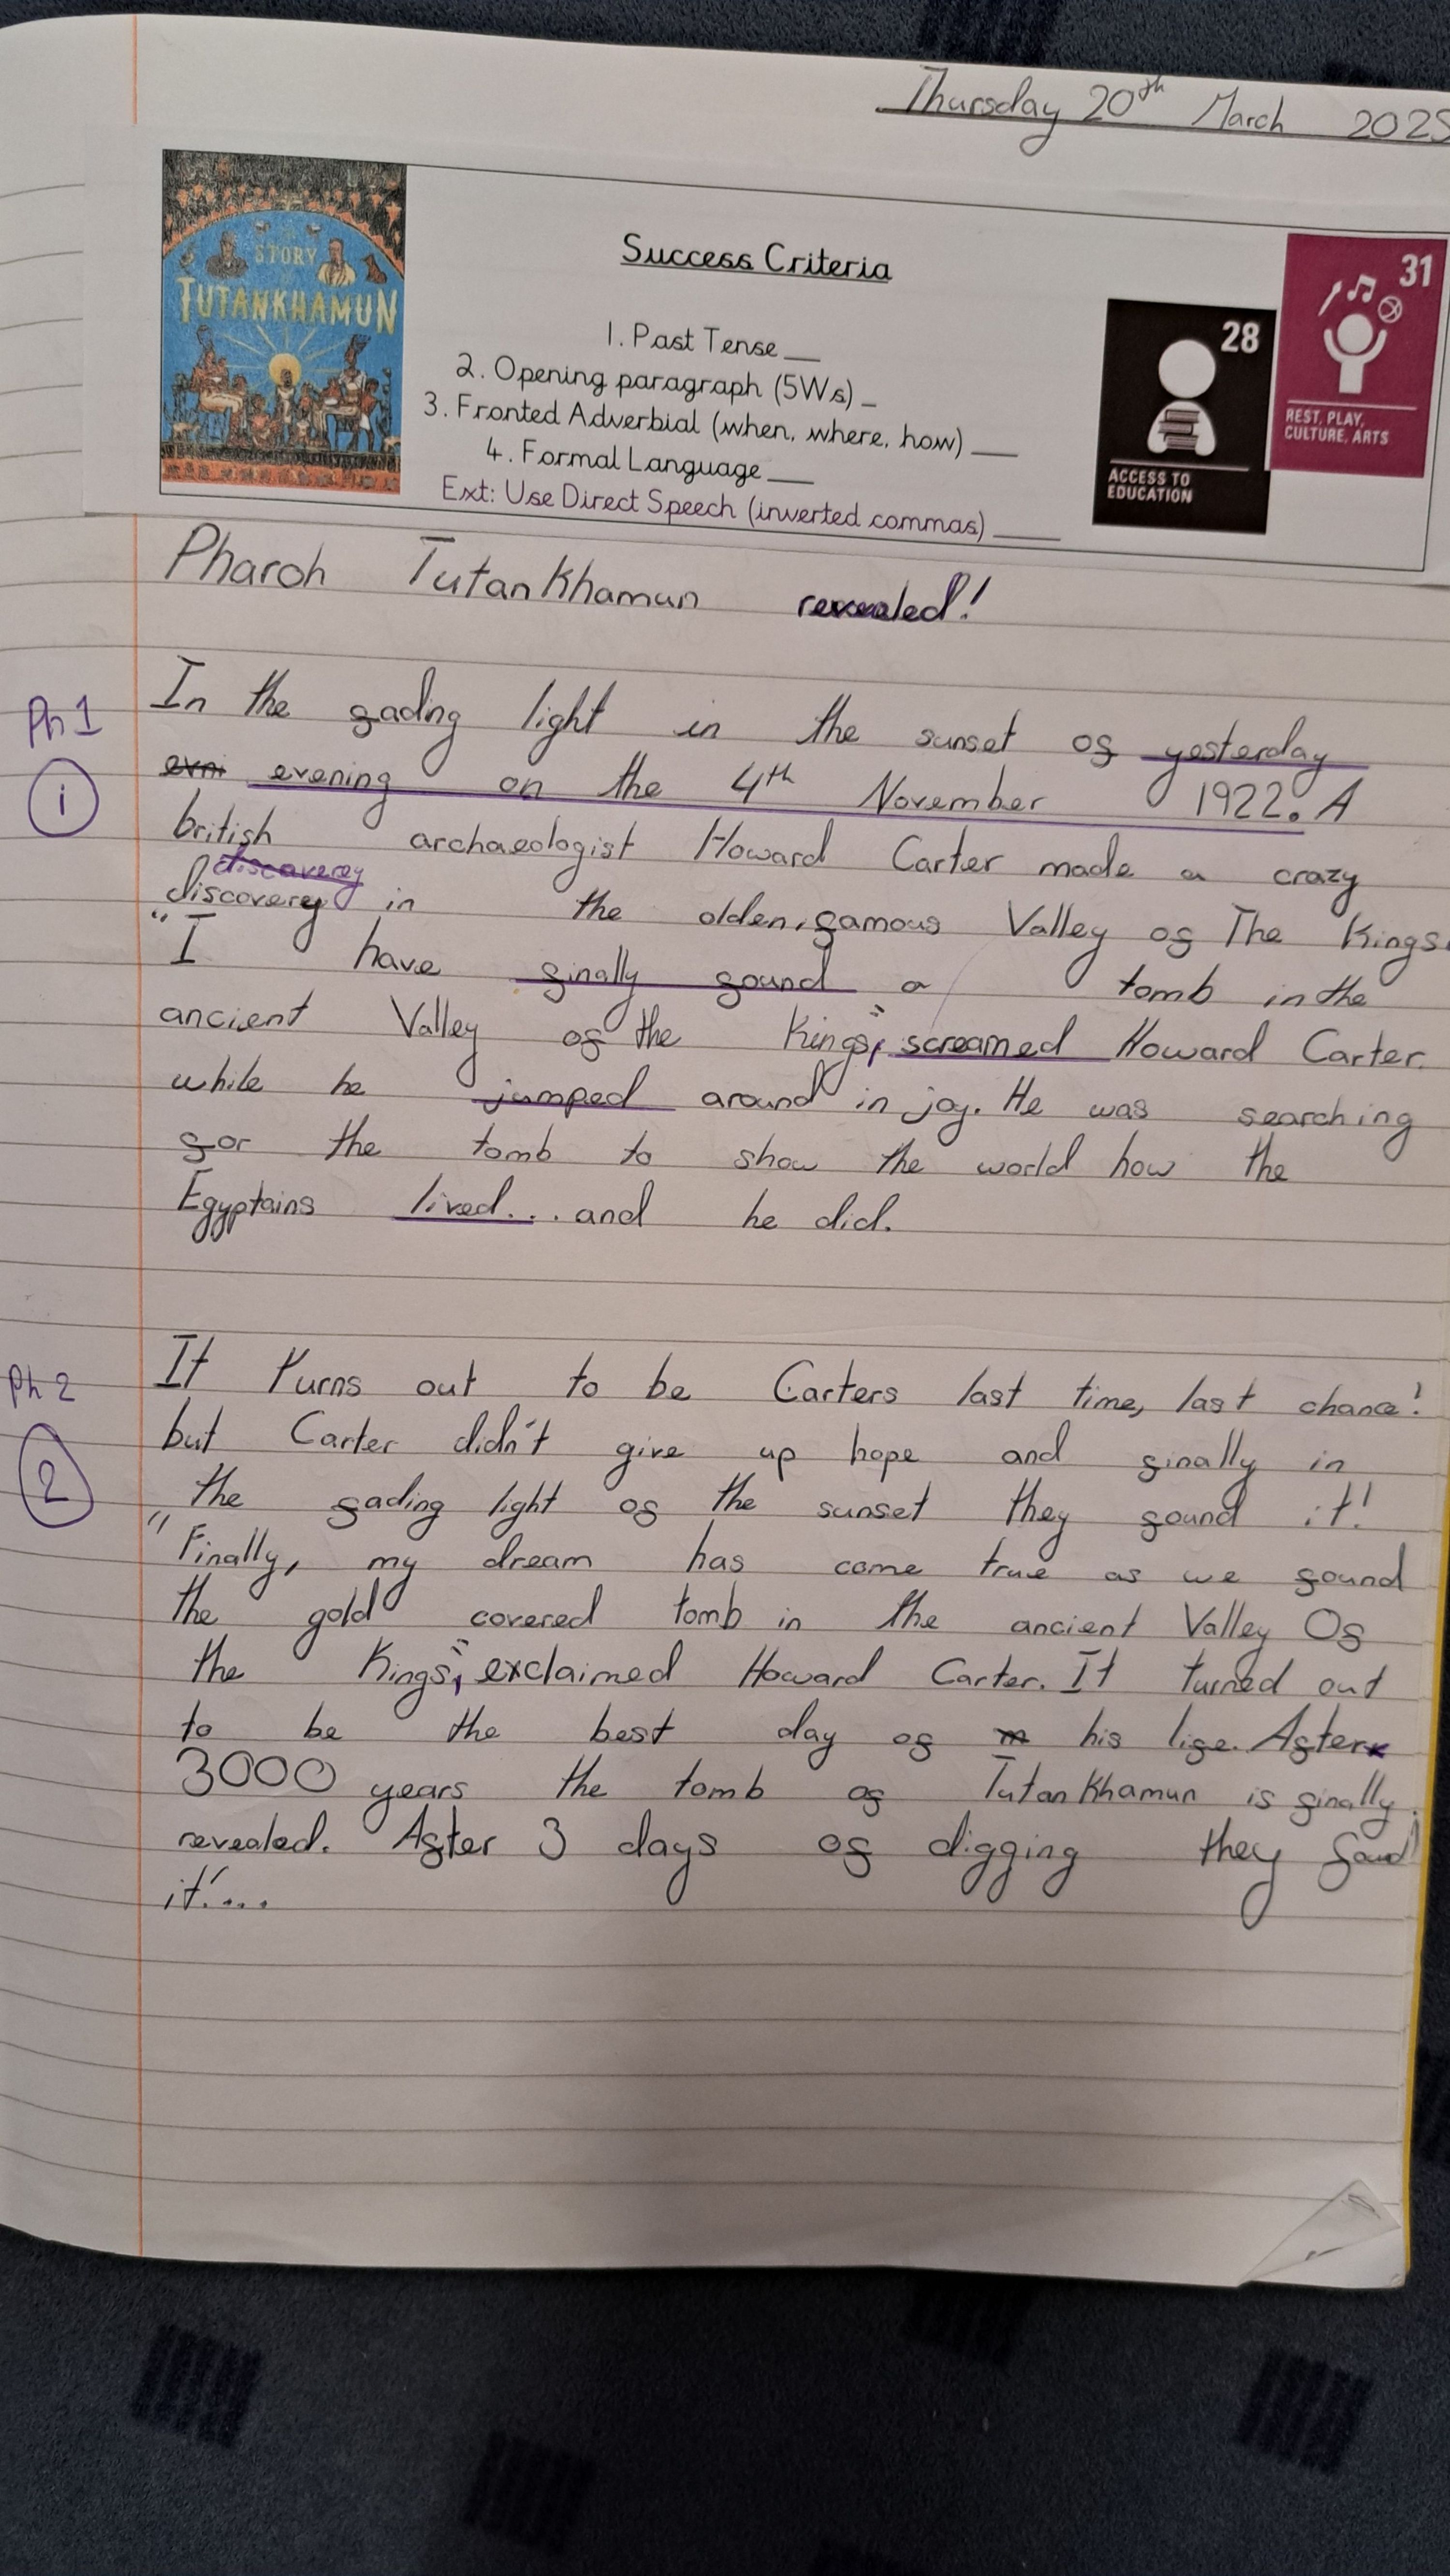 Thursday 20th March 2025
STORY
TUTANKHAMUN
Success Criteria
1. Past Tense __
2. Opening paragraph (5Ws) _
3. Fronted Adverbial (when, where, how) ___
4. Formal Language ___
Ext: Use Direct Speech (inverted commas) ____
28
ACCESS TO
EDUCATION
31
REST, PLAY,
CULTURE, ARTS
Pharoh Tutankhamun revealed!
Ph 1
1
In the fading light in the sunset of yesterday
evni evening on the 4th November 1922. A
british archaeologist Howard Carter made a crazy
discaverey
discoverey in the olden, famous Valley of The Kings.
"I have finally found a tomb in the
ancient Valley of the Kings", screamed Howard Carter.
while he jumped around in joy. He was searching
for the tomb to show the world how the
Egyptains lived... and he did.
Ph 2
2
It turns out to be Carters last time, last chance!
but Carter didn't give up hope and finally in
the fading light of the sunset they found it!
"Finally, my dream has come true as we found
the gold covered tomb in the ancient Valley Of
the Kings", exclaimed Howard Carter. It turned out
to be the best day of m his life. After
3000 years the tomb of Tutankhamun is finally
revealed. After 3 days of digging they found
it!....